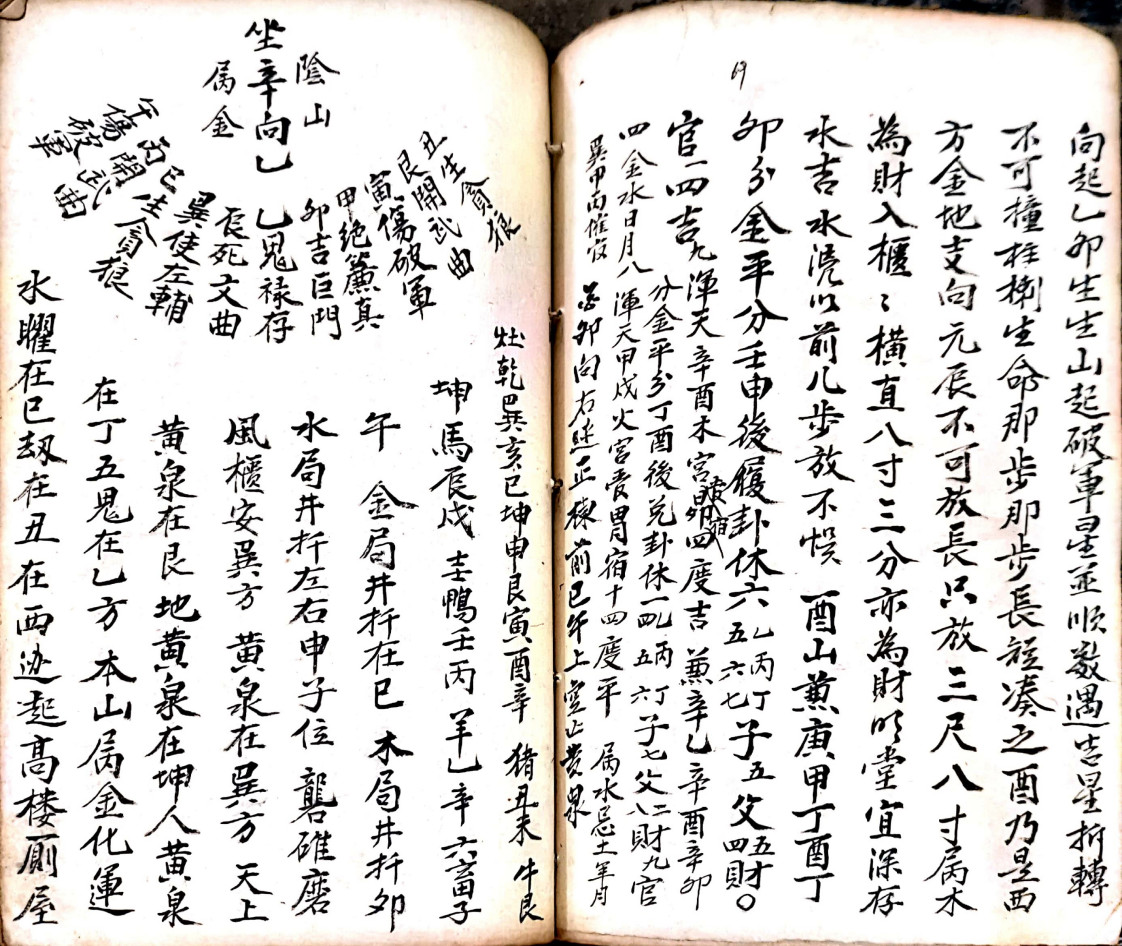 向起乙卯生生山起破軍星並順數遇吉星折轉
不可撞柱捌生命那步那步長短湊之酉乃是西
方金地支向元辰不可放長只放三尺八寸属木
為財入櫃〻橫直八寸三分亦為財明堂宜深存
水吉水流以前几步放不悮 酉山兼庚甲丁酉丁
卯分金平分壬申後履卦休六乙五丙六丁七子五父四五財〇
官一四吉九渾天辛酉木宮昴四度吉兼辛乙辛酉辛卯
分金平分丁酉後兌卦休一四丙五丁六子七父八二財九官
四金水日月八渾天甲戌火宮胃宿十四度平 属水忌土年月
巽甲丙催官 卯向右 正 前巳午上 黃泉
69
陰山
坐辛向乙
属金
丑生貪狼
艮開武曲
寅傷破軍
甲絶簾真
卯吉巨門
乙鬼禄存
辰死文曲
巽使左輔
巳生貪狼
丙開武曲
午傷破軍
灶乾巽亥巳坤申艮寅酉辛 猪丑未 牛艮
坤馬辰戌 壬鴨壬丙 羊乙辛六畜子
午 金局井扦在巳 木局井扦卯
水局井扦左右申子位 礱碓磨
風櫃安巽方 黃泉在巽方 天上
黃泉在艮地黃泉在坤人黃泉
在丁五鬼在乙方 本山属金化運
水曜在巳刼在丑在西边起高楼厠屋